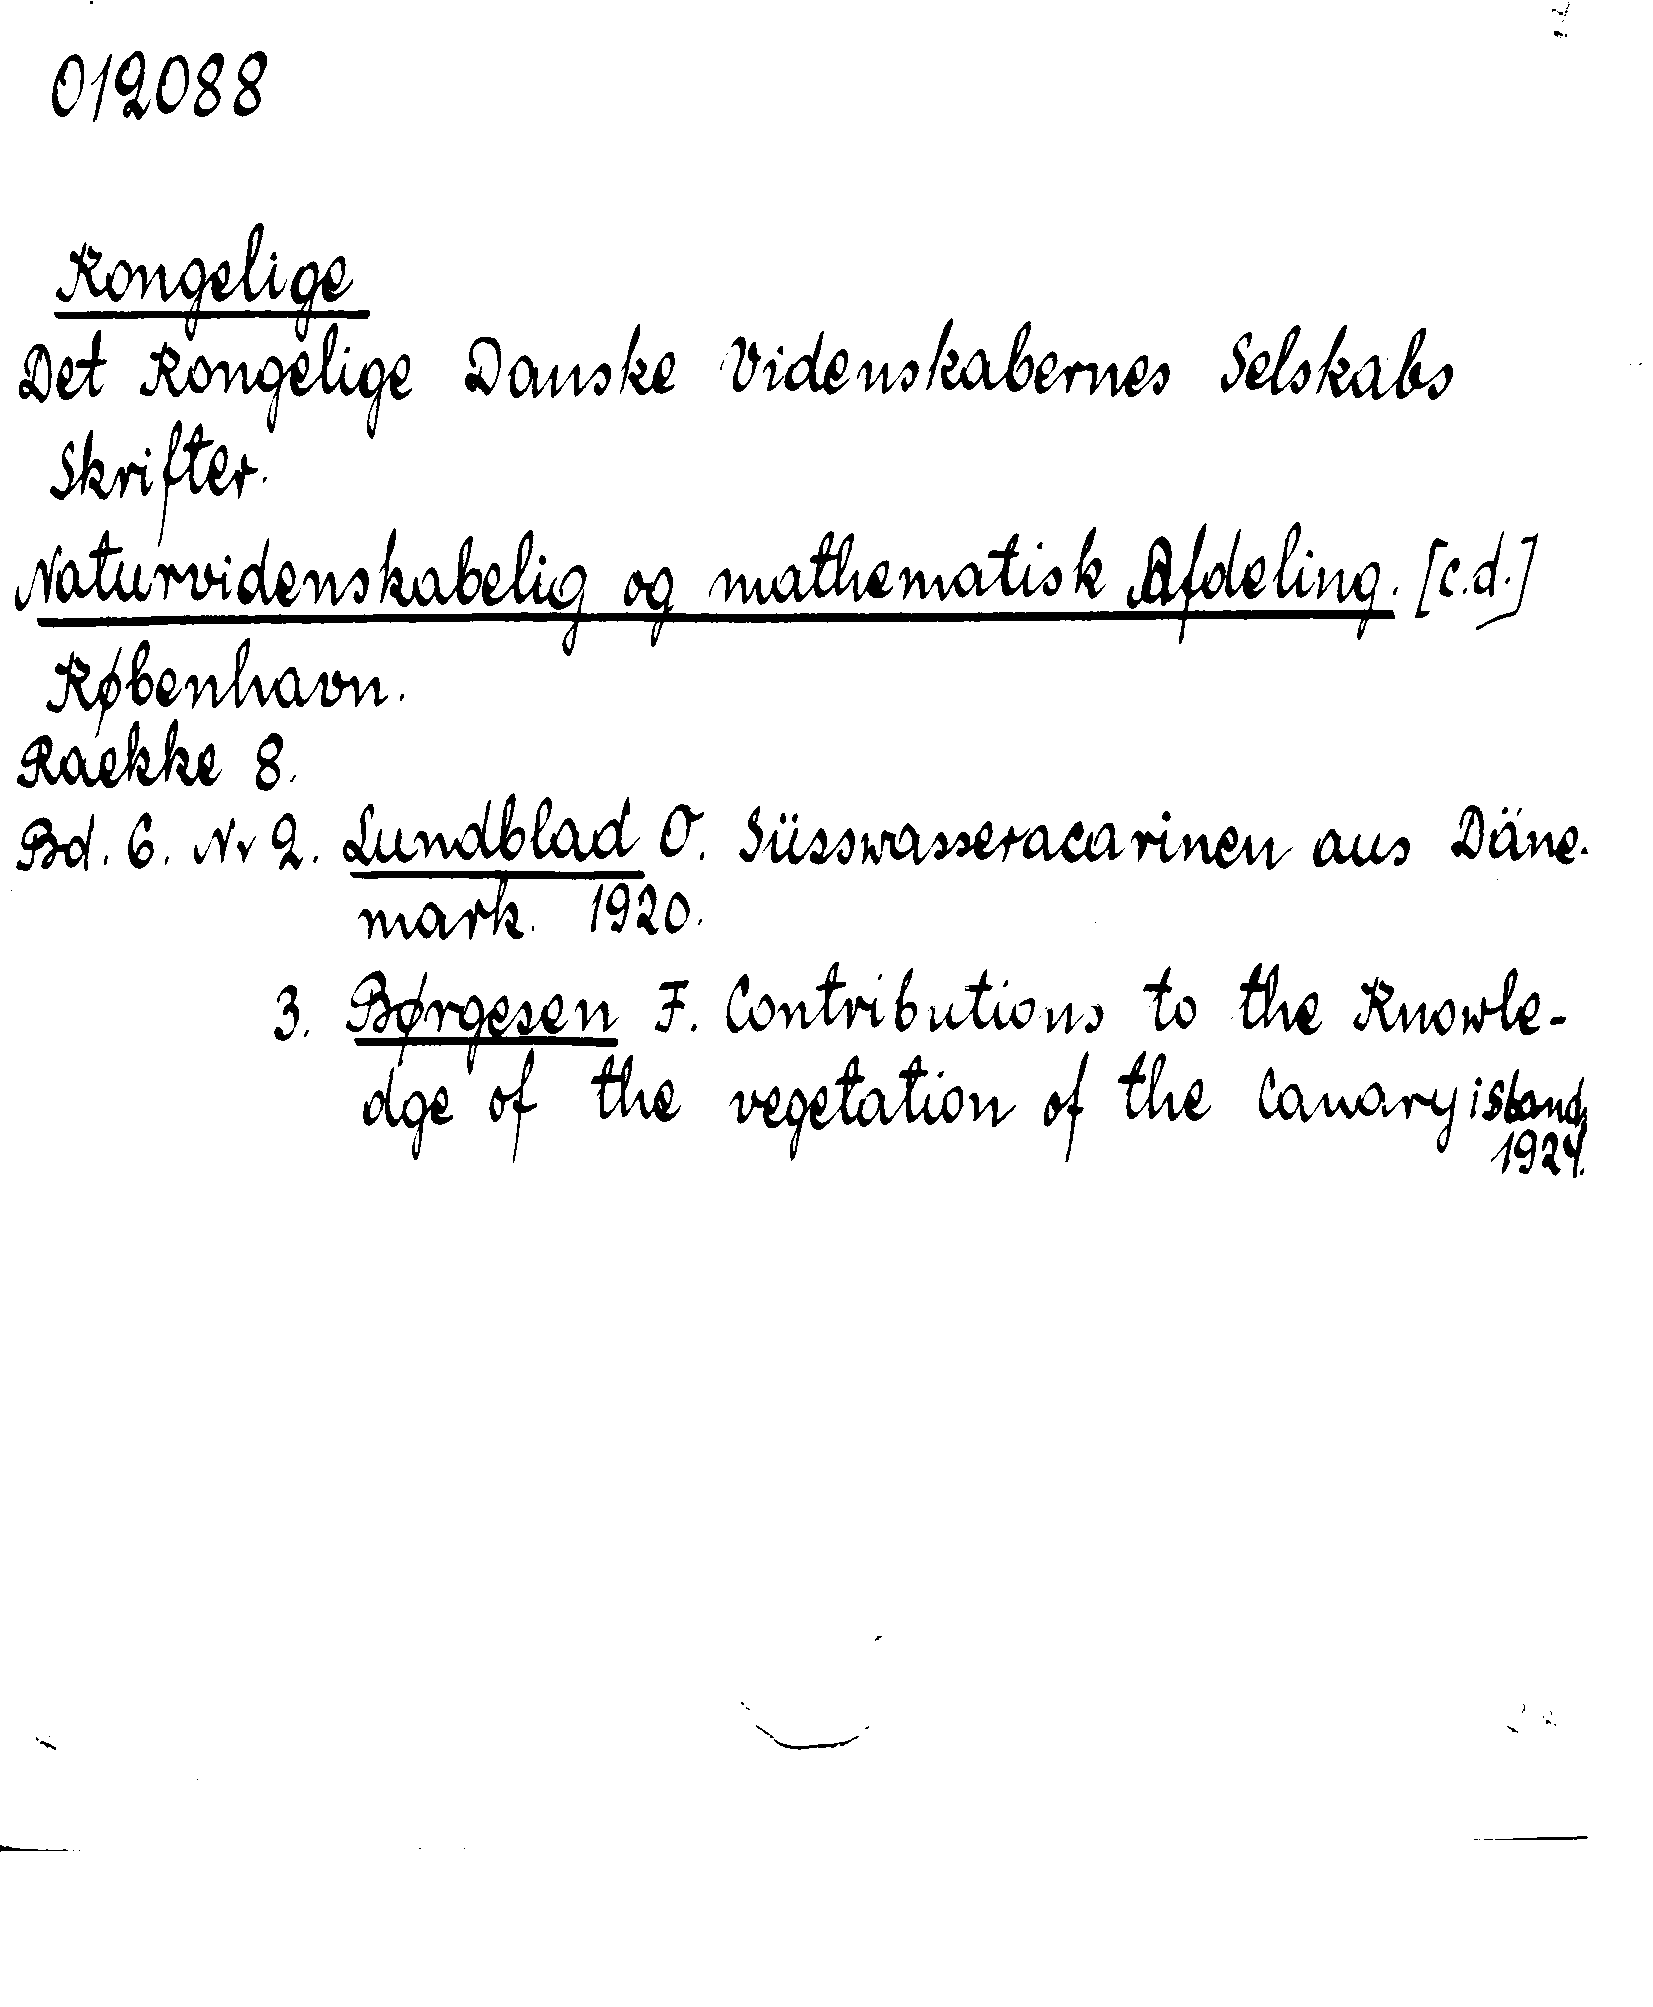 012088
Kongelige
Det Kongelige Danske Videnskabernes Selskabs
Skrifter.
Naturvidenskabelig og mathematisk Afdeling. [c.d.]
København.
Raekke 8.
Bd. 6. Nr 2. Lundblad O. Süsswasseracarinen aus Däne-
mark. 1920.
3. Børgesen F. Contributions to the Knowle-
dge of the vegetation of the Canary island,
1924.